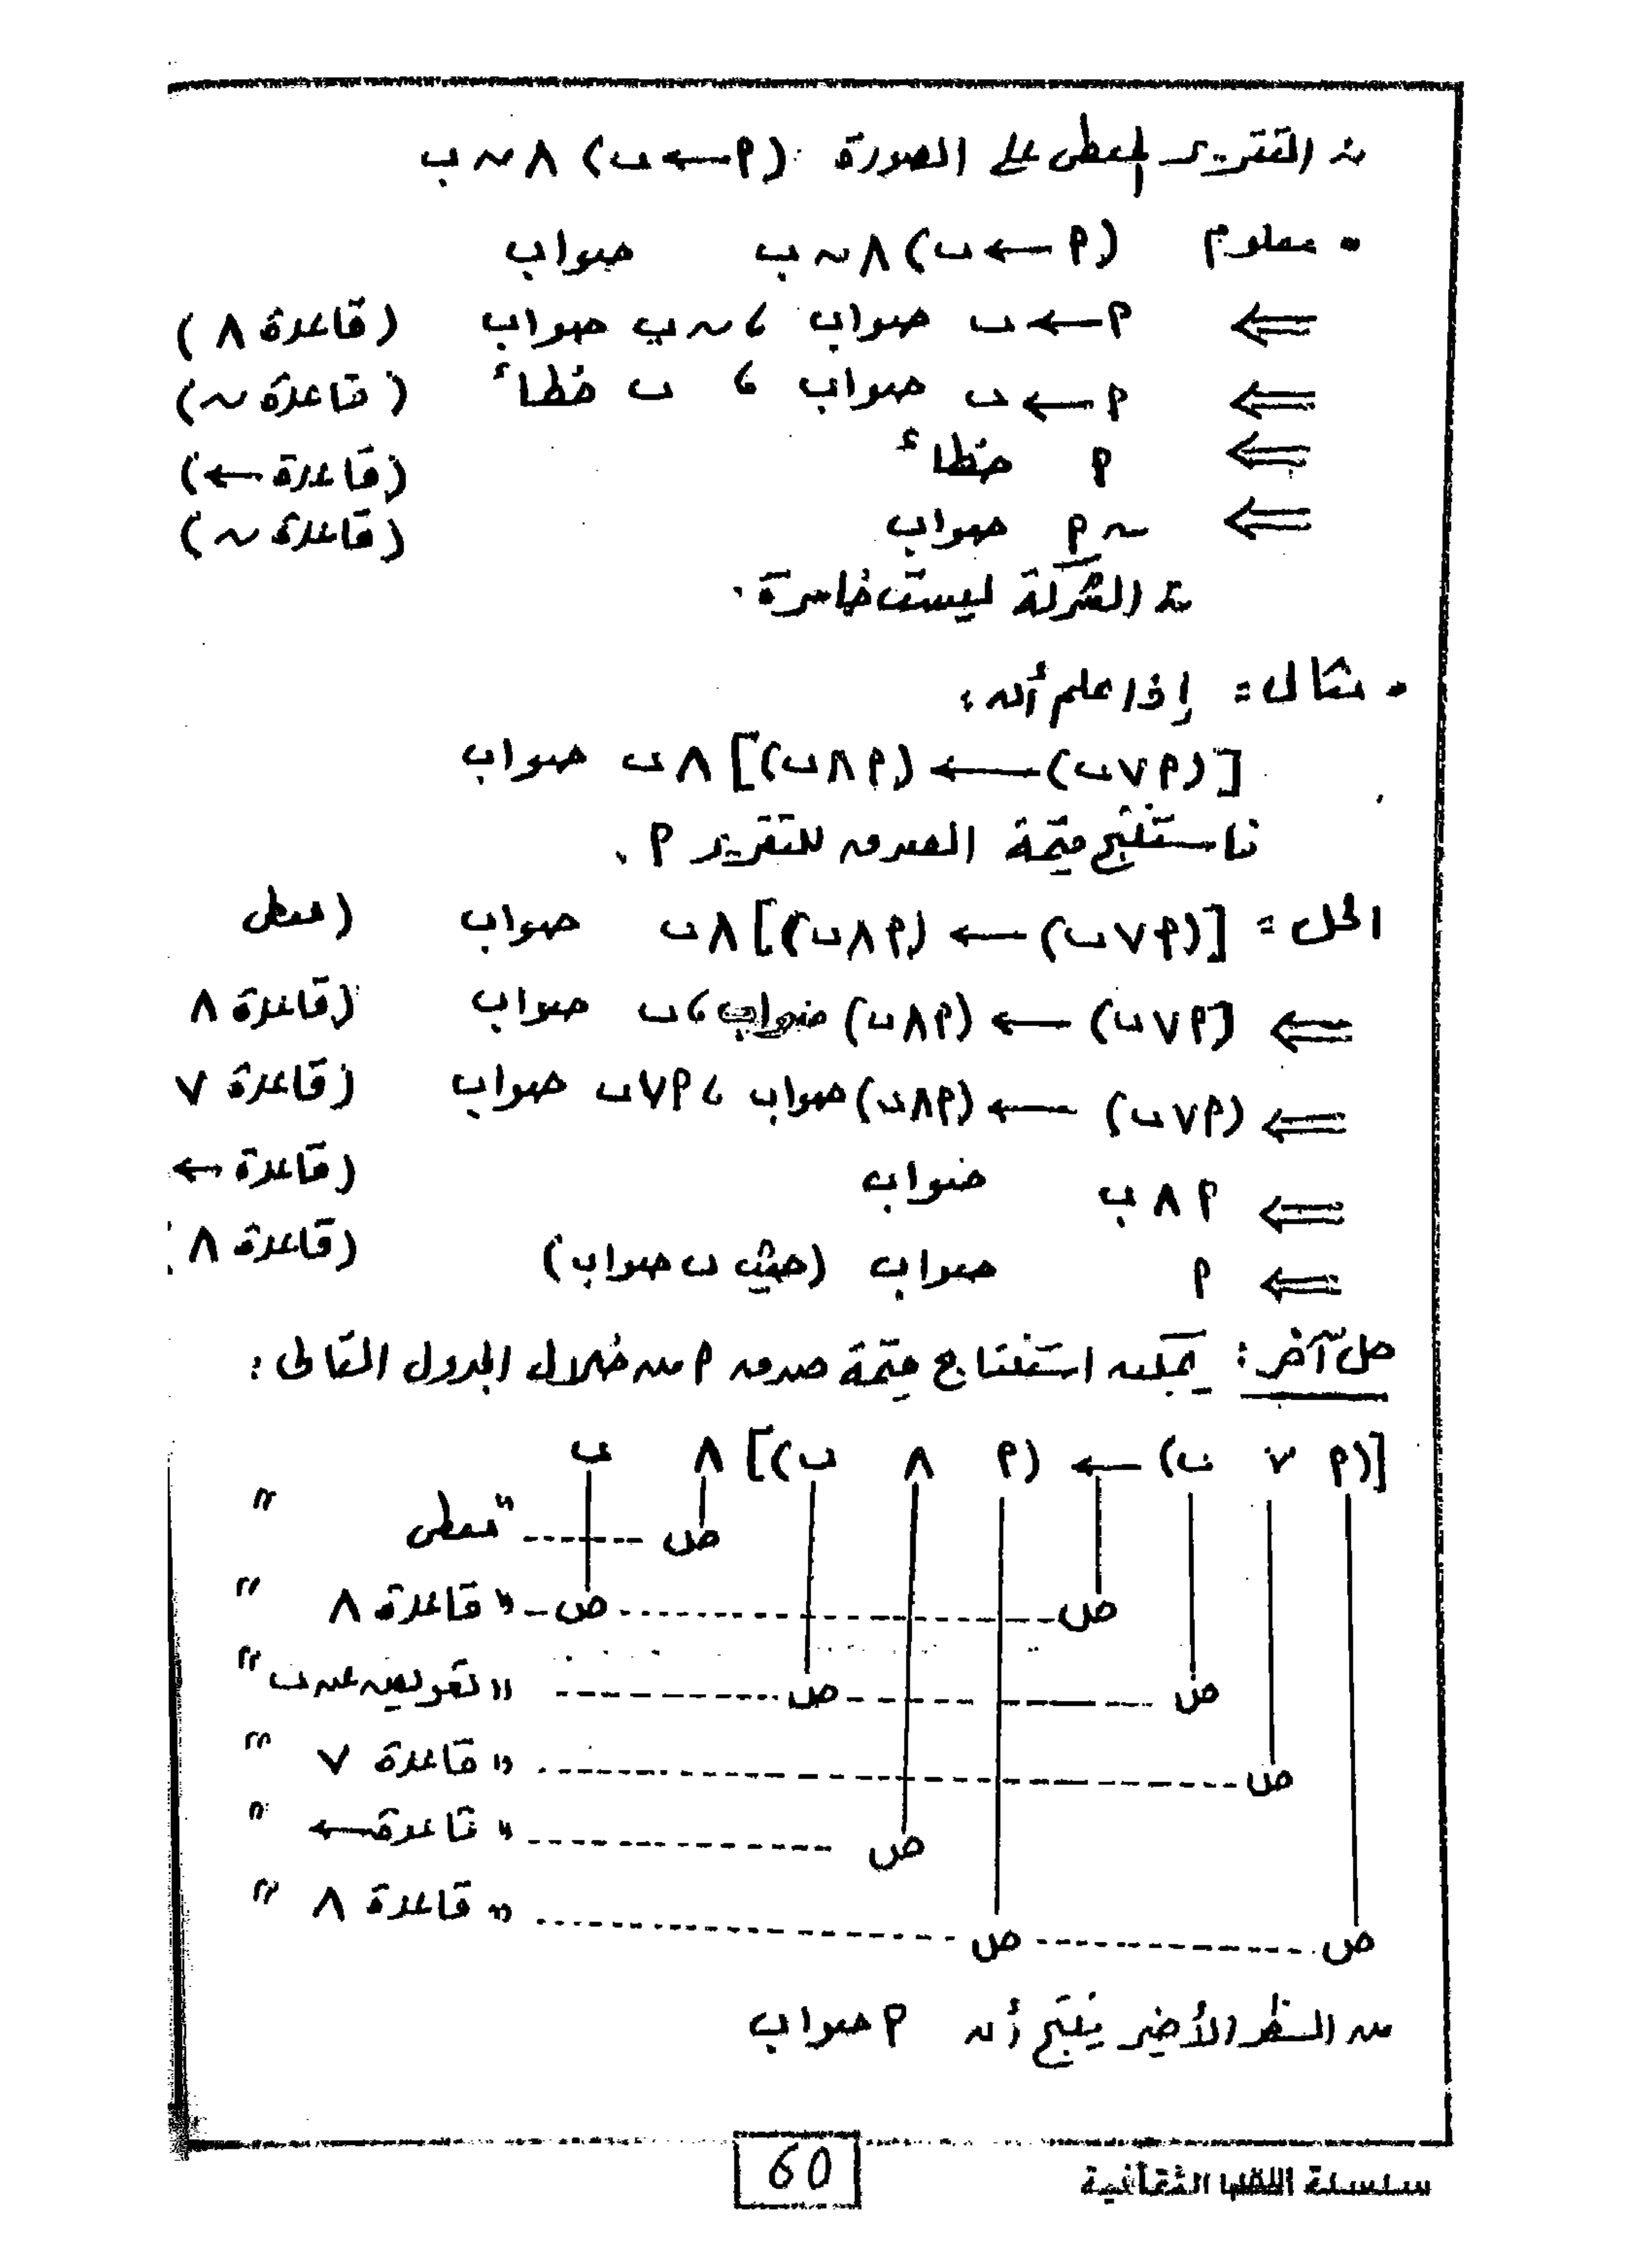 ∴ التقرير المعطى على الصورة : (م ← ب) ∧ ~ ب
• معلوم (م ← ب) ∧ ~ ب صواب
⇐ م ← ب صواب ، ~ ب صواب (قاعدة ∧)
⇐ م ← ب صواب ، ب خطأ (قاعدة ~)
⇐ م خطأ (قاعدة ←)
⇐ ~ م صواب (قاعدة ~)
∴ الشركة ليست خاسرة .
• مثال = إذا علم أن :
[(م ∨ ب) ← (م ∧ ب)] ∧ ب صواب
فاستنتج قيمة الصدق للتقرير م .
الحل = [(م ∨ ب) ← (م ∧ ب)] ∧ ب صواب (معطى
⇐ [(م ∨ ب) ← (م ∧ ب) صواب ، ب صواب (قاعدة ∧
⇐ (م ∨ ب) ← (م ∧ ب) صواب ، م ∨ ب صواب (قاعدة ∨
⇐ م ∧ ب صواب (قاعدة ←
⇐ م صواب (حيث ب صواب) (قاعدة ∧)
حل آخر : يمكن استنتاج قيمة صدق م من خلال الجدول التالى :
[(م ∨ ب) ← (م ∧ ب)] ∧ ب
ص ------ " معطى "
ص ------ ص - " قاعدة ∧ "
ص ------ ص ------ " تعويض عن ب "
ص ------ " قاعدة ∨ "
ص ------ " قاعدة ← "
ص ------ ص ------ " قاعدة ∧ "
من السطر الأخير ينتج أن م صواب
60
سلسلة اللقيا الثقافية